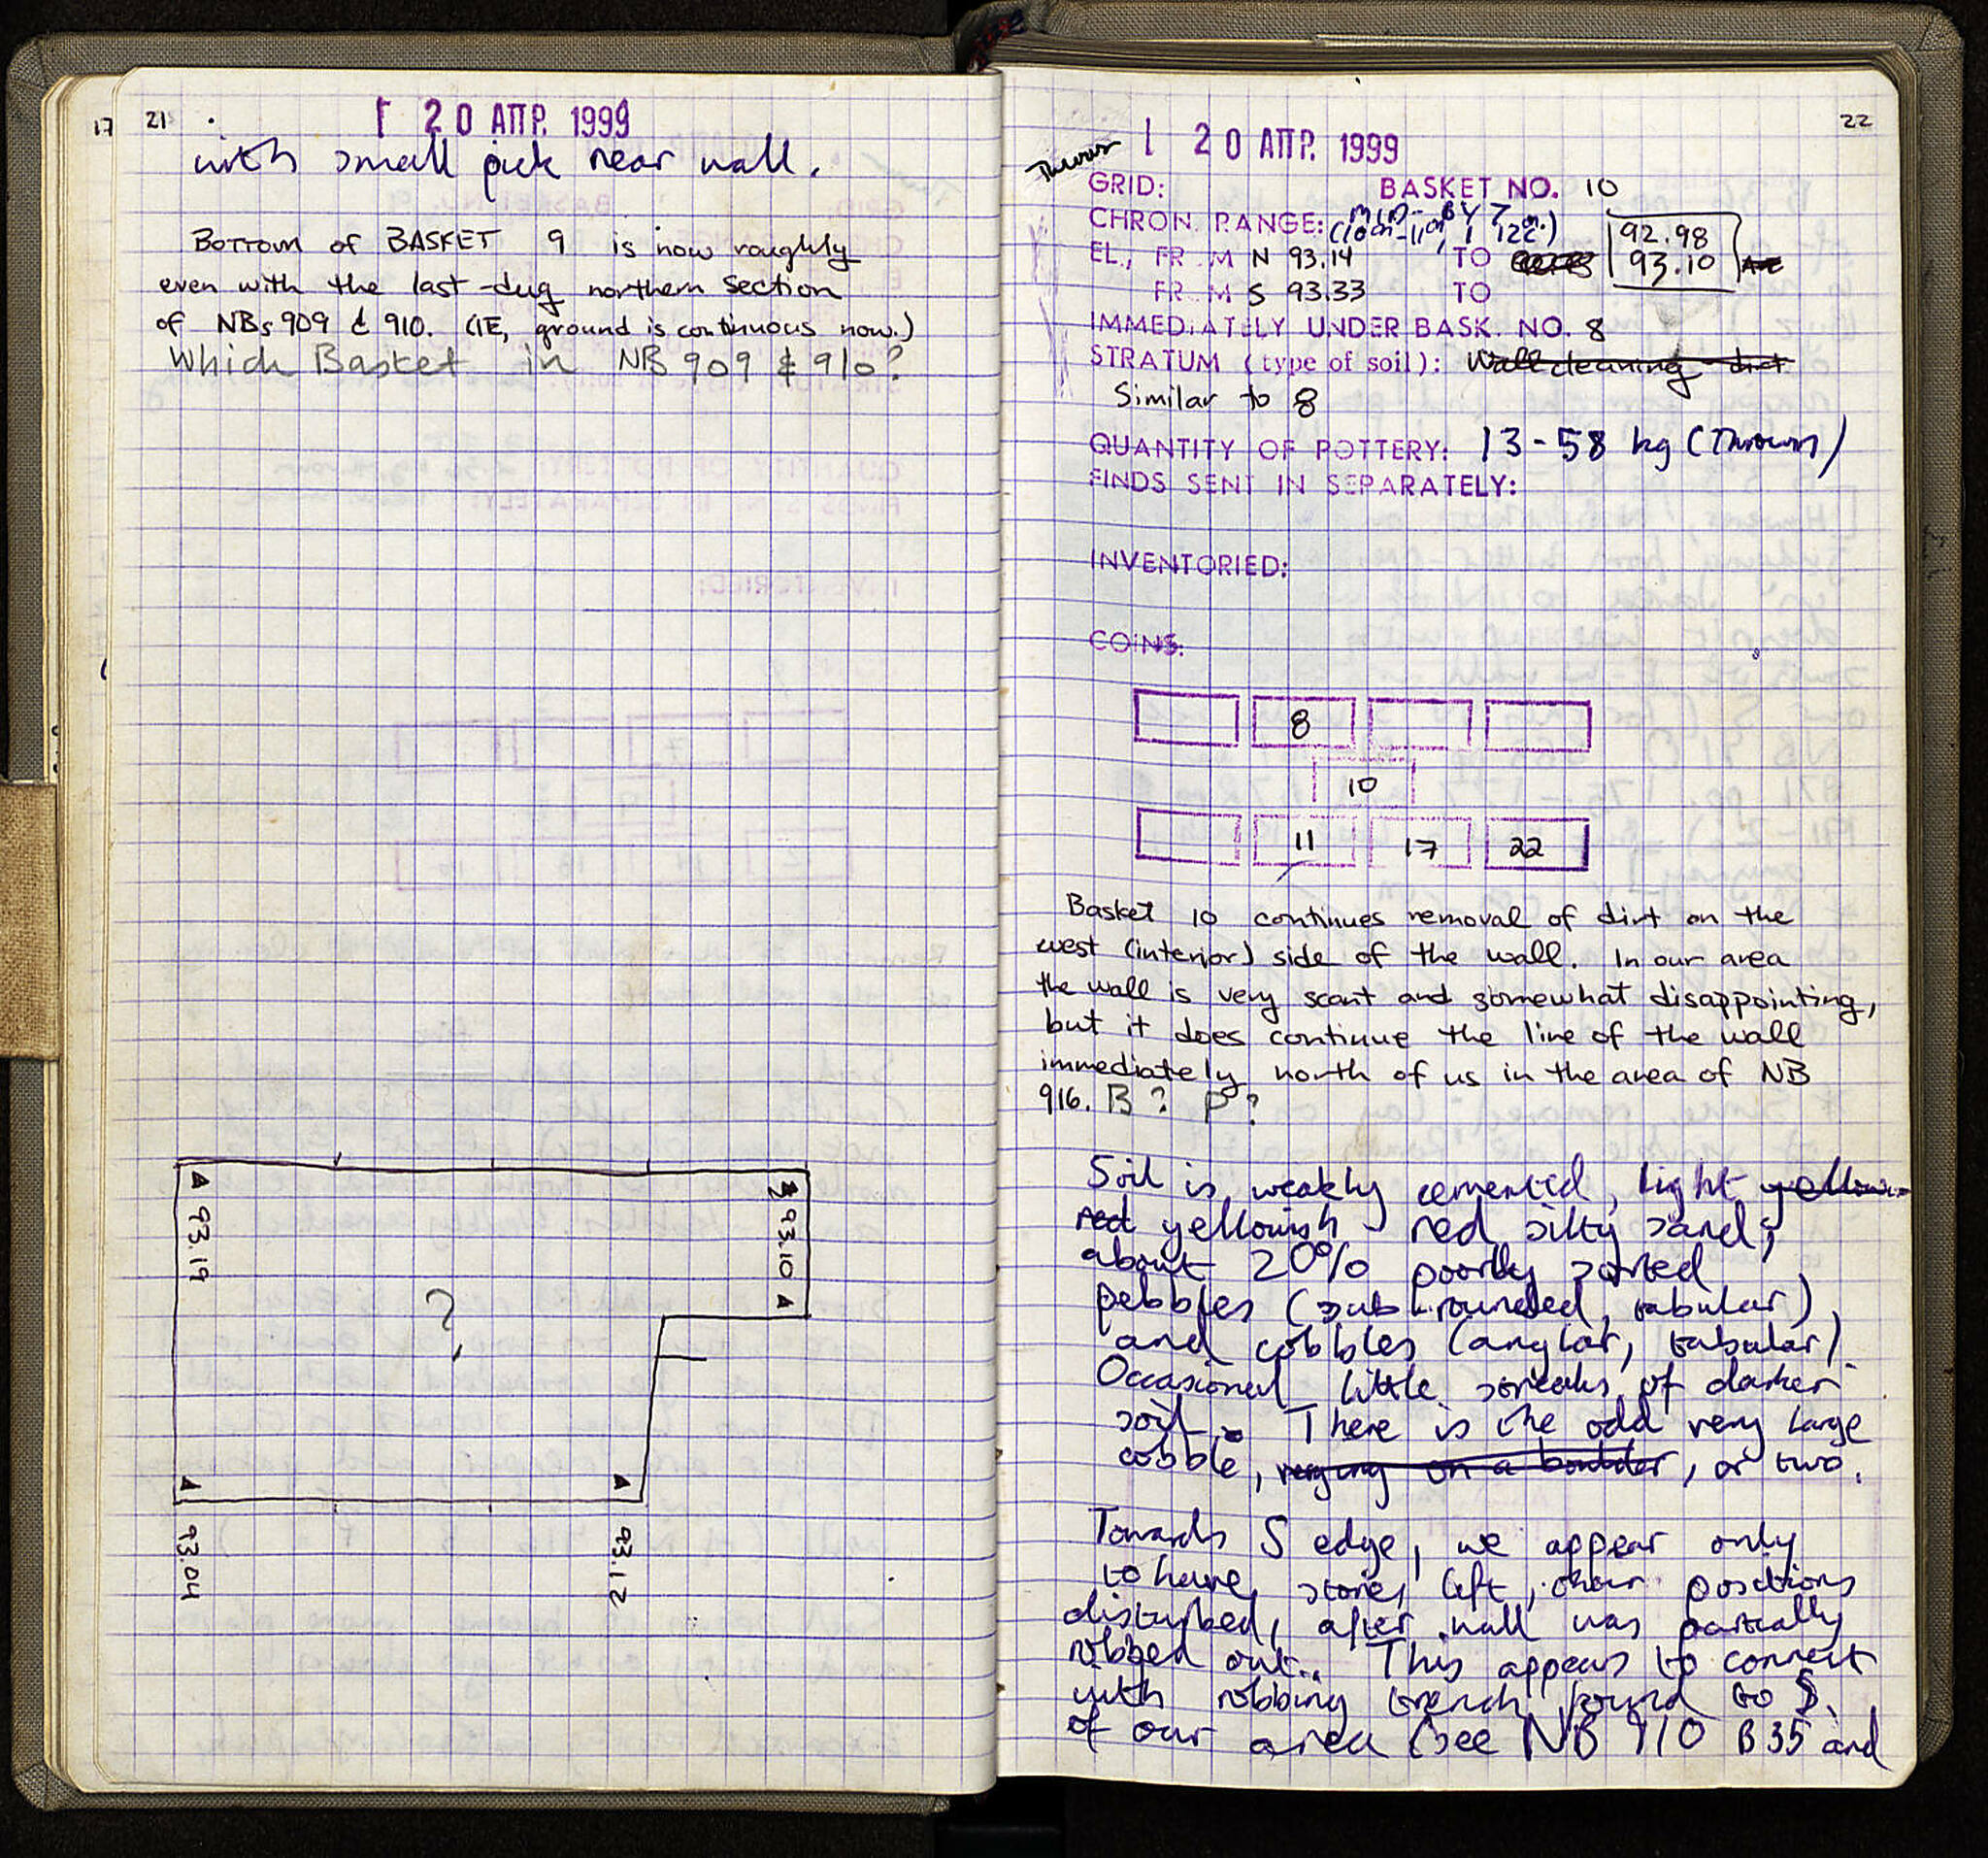 17 21
20 ΑΠΡ. 1999
with small pick near wall.
BOTTOM of BASKET 9 is now roughly
even with the last-dug northern section
of NBs 909 & 910. (IE, ground is continuous now.)
Which Basket in NB 909 & 910?
93.19
93.10
?
93.04
93.12
22
20 ΑΠΡ. 1999
Thrown
GRID: BASKET NO. 10
CHRON. RANGE: MID-BYZ
92.98
EL., FR M N 93.14 TO 93.10
FR M S 93.33 TO
IMMEDIATELY UNDER BASK. NO. 8
STRATUM (type of soil): Wall cleaning dirt
Similar to 8
QUANTITY OF POTTERY: 13-58 kg (Thrown)
FINDS SENT IN SEPARATELY:
INVENTORIED:
COINS:
8
10
11 17 22
Basket 10 continues removal of dirt on the
west (interior) side of the wall. In our area
the wall is very scant and somewhat disappointing,
but it does continue the line of the wall
immediately north of us in the area of NB
916. B? P?
Soil is weakly cemented, light yellow-
red yellowish red silty sand;
about 20% poorly sorted
pebbles (sub-rounded, tabular)
and cobbles (anglar, tabular).
Occasional little streaks of darker
soil. There is the odd very large
cobble, verging on a boulder, or two.
Towards S edge, we appear only
to have stones left, their positions
disturbed, after wall was partially
robbed out. This appears to connect
with robbing trench found to S.
of our area (see NB 910 B35 and